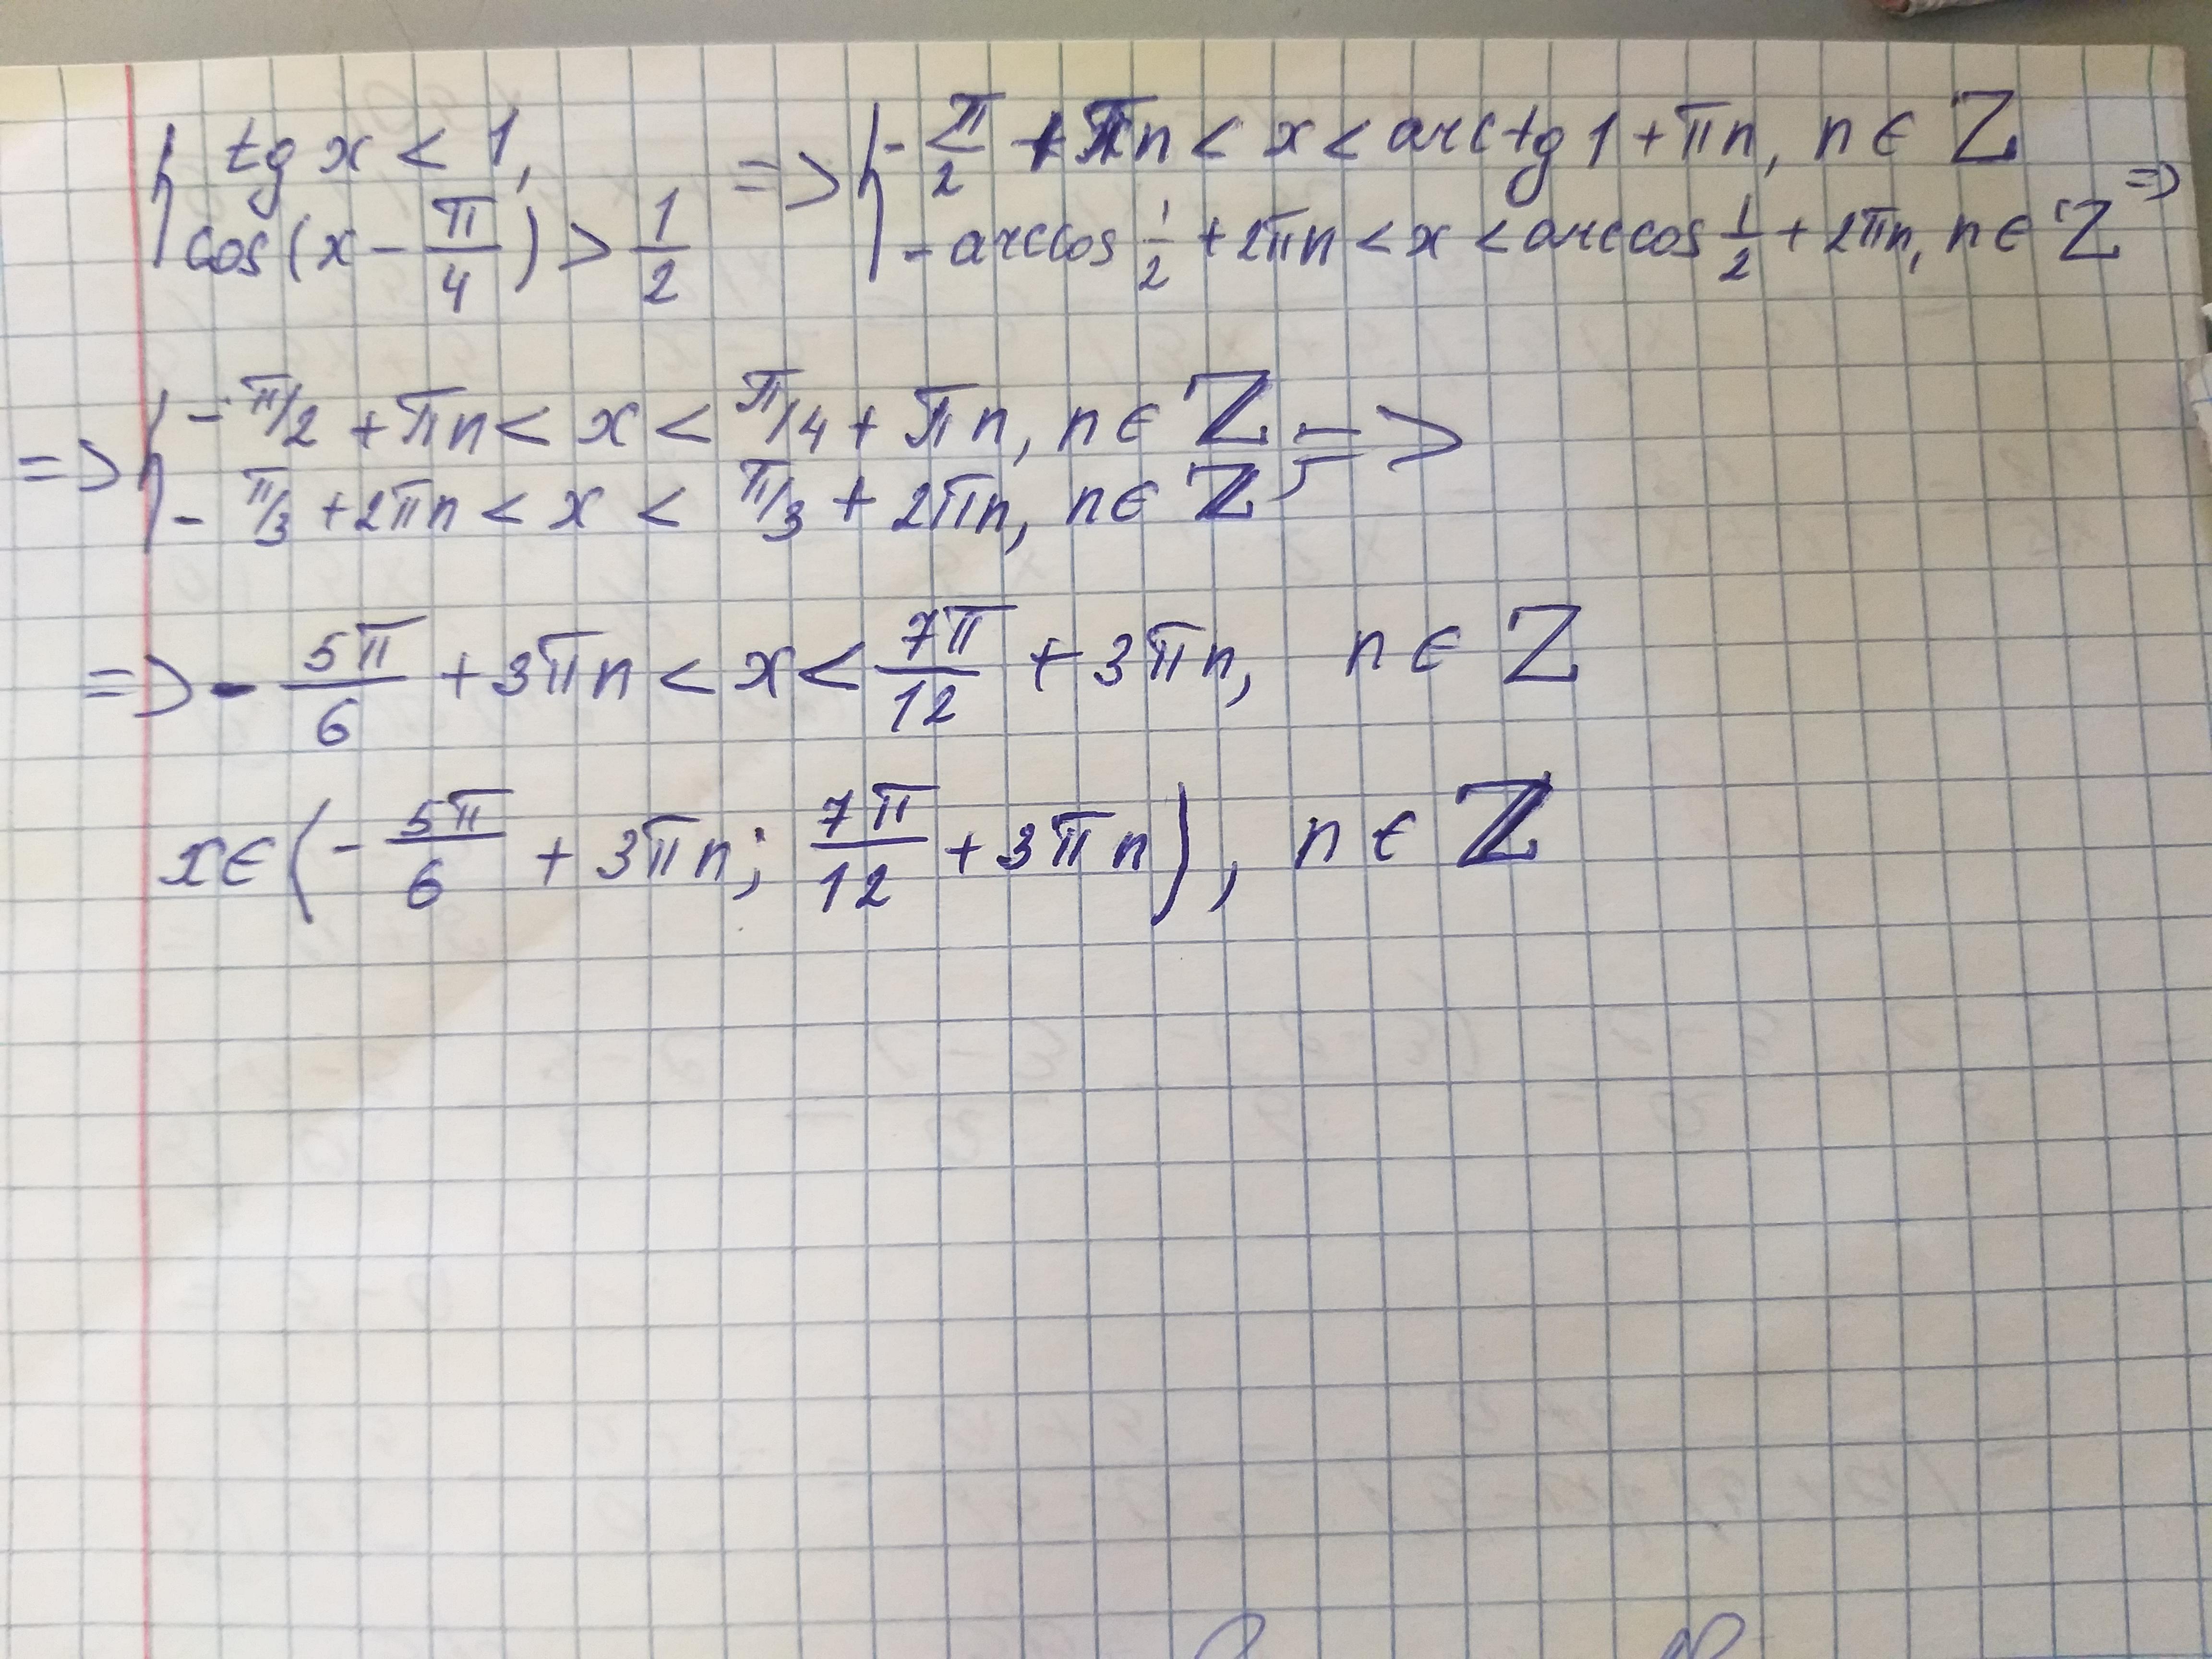 { tg x < 1, => { - π/2 + πn < x < arctg 1 + πn, n ∈ Z
cos(x - π/4) > 1/2 - arccos 1/2 + 2πn < x < arccos 1/2 + 2πn, n ∈ Z =>
=> { - π/2 + πn < x < π/4 + πn, n ∈ Z =>
- π/3 + 2πn < x < π/3 + 2πn, n ∈ Z;
=> - 5π/6 + 3πn < x < 7π/12 + 3πn, n ∈ Z
x ∈ (- 5π/6 + 3πn; 7π/12 + 3πn), n ∈ Z